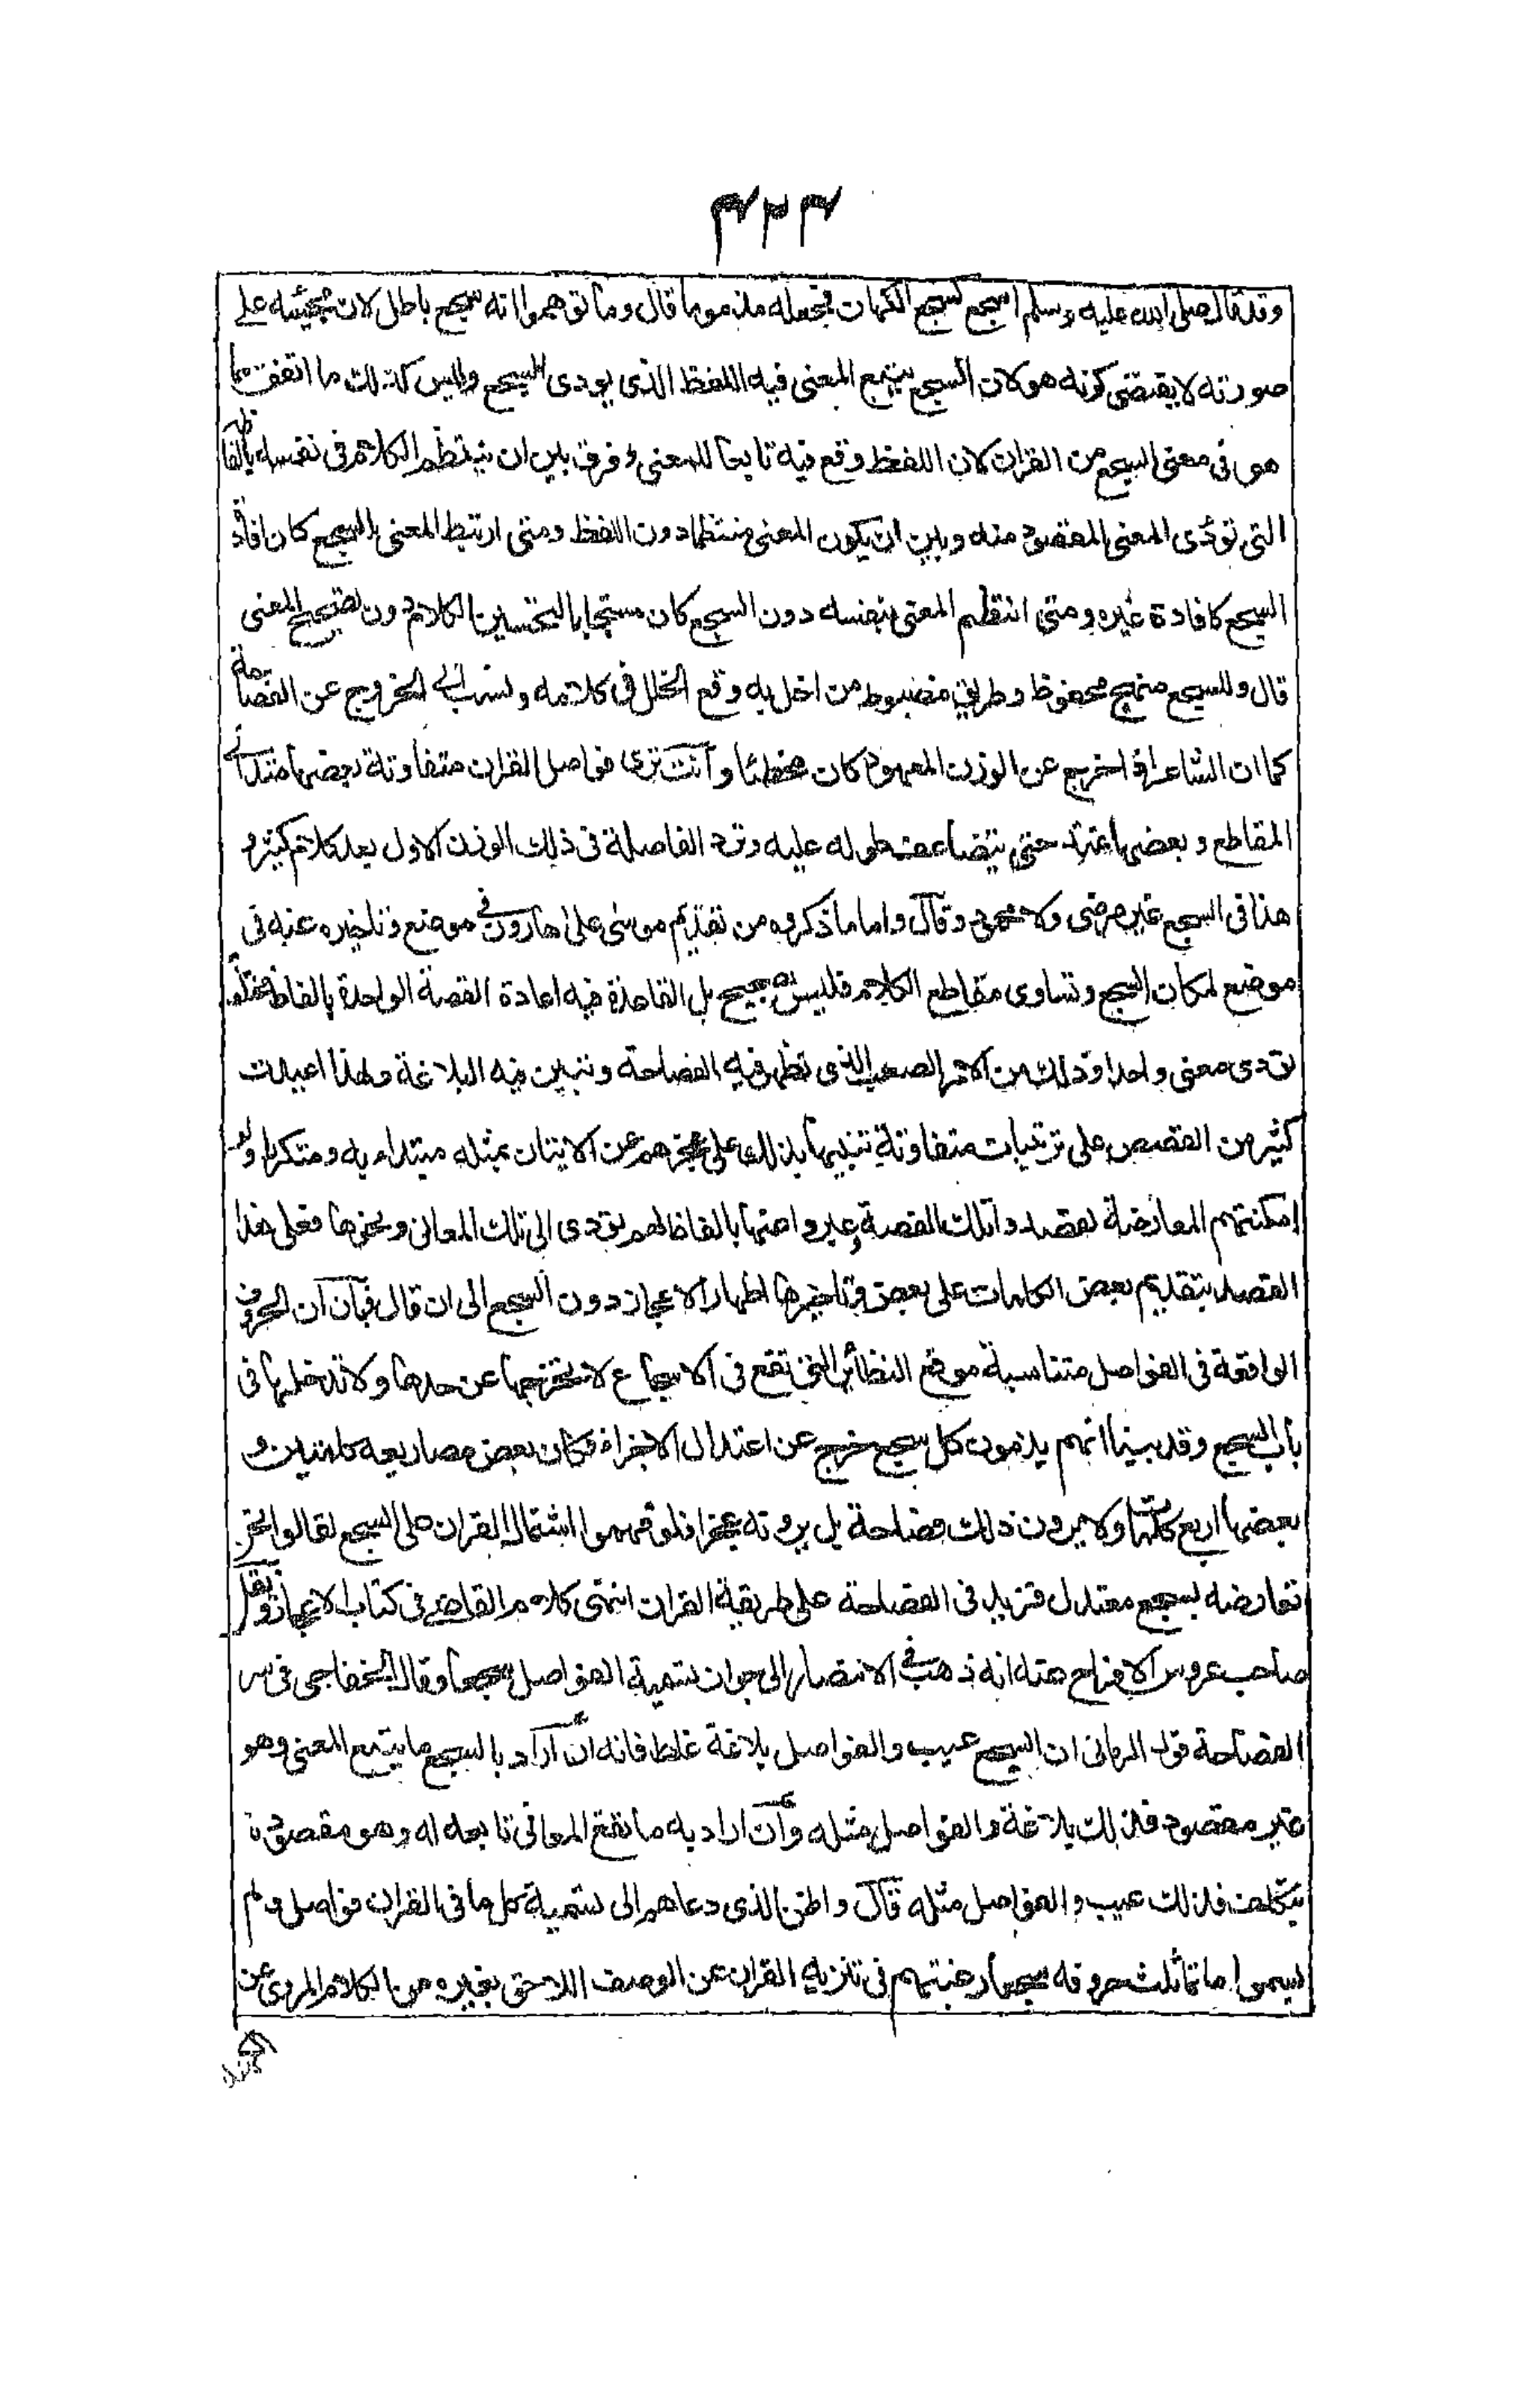 ٤٢٣
وقد قال صلى الله عليه وسلم اسجع كسجع الكهان فجعله مذموما قال وما توهموا انه سجع باطل لان مجيئه على
صورته لا يقتضى كونه هو لان السجع يتبع المعنى فيه اللفظ الذى يودى السجع وليس كذلك ما اتفق مما
هو فى معنى السجع من القران لان اللفظ وقع فيه تابعا للمعنى وفرق بين ان ينتظم الكلام فى نفسه بالفاظه
التى تؤدى المعنى المقصود منه وبين ان يكون المعنى منتظما دون اللفظ ومتى ارتبط المعنى بالسجع كان افادة
السجع كافادة غيره ومتى انتظم المعنى بنفسه دون السجع كان مستجلبا لتحسين الكلام دون تصحيح المعنى
قال وللسجع منهج محفوظ وطريق مضبوط من اخل به وقع الخلل فى كلامه ونسب الى الخروج عن الفصاحة
كما ان الشاعر اذا خرج عن الوزن المعهود كان مخطئا وانت ترى فواصل القران متفاوتة بعضها متدانى
المقاطع وبعضها يمتد حتى يتضاعف طوله عليه وترد الفاصلة فى ذلك الوزن الاول بعد كلام كثير و
هذا فى السجع غير مرضى ولا محمود وقال واما ما ذكروه من تقديم موسى على هارون فى موضع وتاخيره عنه فى
موضع لمكان السجع وتساوى مقاطع الكلام فليس بصحيح بل الفائدة فيه اعادة القصة الواحدة بالفاظ مختلفة
تؤدى معنى واحدا وذلك من الامر الصعب الذى تظهر فيه الفصاحة وتتبين فيه البلاغة ولهذا اعيدت
كثير من القصص على ترتيبات متفاوتة تنبيها بذلك على عجزهم عن الاتيان بمثله مبتداء به ومتكررا ولو
امكنتهم المعارضة لقصدوا تلك القصة وعبروا عنها بالفاظ لهم تؤدى الى تلك المعانى ونحوها فعلى هذا
القصد بتقديم بعض الكلمات على بعض وتاخيرها اظهار الاعجاز دون السجع الى ان قال فبان ان الحروف
الواقعة فى الفواصل متناسبة موقع النظائر التى تقع فى الاسجاع لا تخرجها عن حدها ولا تدخلها فى
باب السجع وقد بينا انهم يذمون كل سجع خرج عن اعتدال الاجزاء فكان بعض مصاريعه كلمتين و
بعضها اربع كلمات ولا يرون ذلك فصاحة بل يرونه عجزا فلو فهموا اشتمال القران على السجع لقالوا نحن
نعارضه بسجع معتدل فنزيد فى الفصاحة على طريقة القران انتهى كلام القاضى فى كتاب الاعجاز ونقل
صاحب عروس الافراح عنه انه ذهب فى الانتصار الى جواز تسمية الفواصل سجعا وقال الخفاجى فى سر
الفصاحة قول الرمانى ان السجع عيب والفواصل بلاغة غلط فانه ان اراد بالسجع ما يتبع المعنى وهو
غير مقصود فذلك بلاغة والفواصل مثله وان اراد به ما تقع المعانى تابعة له وهو مقصود
يتكلف فذلك عيب والفواصل مثله قال واظن الذى دعاهم الى تسمية كل ما فى القران فواصل ولم
يسموا ما تماثلت حروفه سجعا رغبتهم فى تنزيه القران عن الوصف اللاحق بغيره من الكلام المروى عن